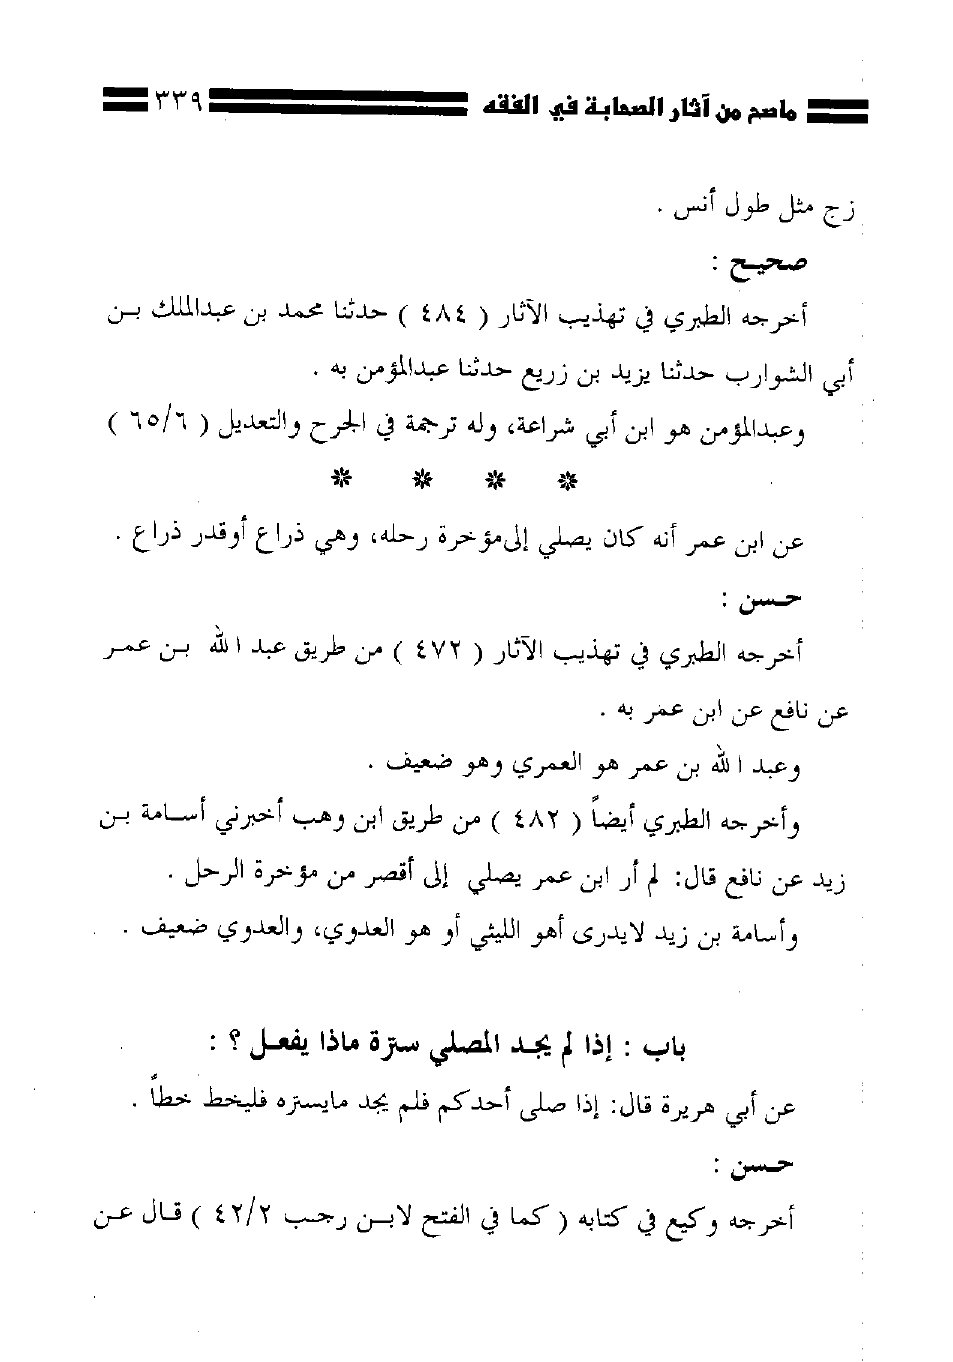 ماصح من آثار الصحابة في الفقه ٣٣٩
زج مثل طول أنس .
صحيح :
أخرجه الطبري في تهذيب الآثار ( ٤٨٤ ) حدثنا محمد بن عبدالملك بن
أبي الشوارب حدثنا يزيد بن زريع حدثنا عبدالمؤمن به .
وعبدالمؤمن هو ابن أبي شراعة، وله ترجمة في الجرح والتعديل ( ٦/‏٦٥ )
* * * *
عن ابن عمر أنه كان يصلي إلى مؤخرة رحله، وهي ذراع أوقدر ذراع .
حسن :
أخرجه الطبري في تهذيب الآثار ( ٤٧٢ ) من طريق عبد الله بن عمر
عن نافع عن ابن عمر به .
وعبد الله بن عمر هو العمري وهو ضعيف .
وأخرجه الطبري أيضاً ( ٤٨٢ ) من طريق ابن وهب أخبرني أسامة بن
زيد عن نافع قال: لم أر ابن عمر يصلي إلى أقصر من مؤخرة الرحل .
وأسامة بن زيد لايدرى أهو الليثي أو هو العدوي، والعدوي ضعيف .
باب : إذا لم يجد المصلي سترة ماذا يفعل ؟ :
عن أبي هريرة قال: إذا صلى أحدكم فلم يجد مايستره فليخط خطاً .
حسن :
أخرجه وكيع في كتابه ( كما في الفتح لابن رجب ٢/‏٤٢ ) قال عن